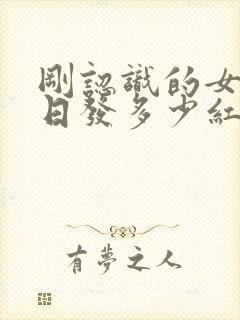 剛認識的女
日發多少紅
有夢之人